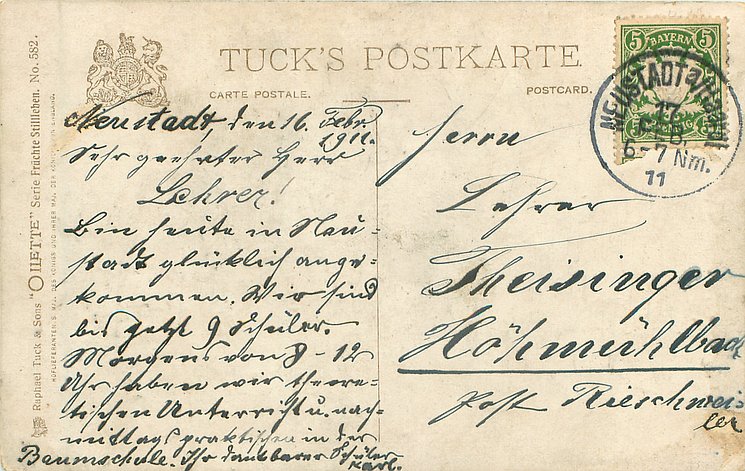 TUCK'S POSTKARTE.
CARTE POSTALE.
POSTCARD.
Raphael Tuck & Sons "OILETTE" Serie Früchte Stillleben. No. 582.
HOFLIEFERANTEN S. MAJ. DES KÖNIGS UND IHRER MAJ. DER KÖNIGIN VON ENGLAND.
5 BAYERN 5
NEUSTADT a/Haardt
17
FEB.
6-7 Nm.
11
Neustadt, den 16. Febr.
1911.
Sehr geehrter Herr
Lehrer!
Bin heute in Neu-
stadt glücklich ange-
kommen. Wir sind
bis jetzt 9 Schüler.
Morgens von 8-12
Uhr haben wir theore-
tischen Unterricht u. nach-
mittags praktischen in der
Baumschule. Ihr dankbarer Schüler
Karl.
Herrn
Lehrer
Theisinger
Höhmühlbach
Post Rieschwei-
ler